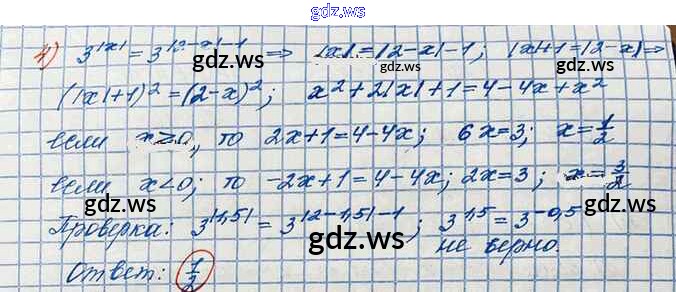 gdz.ws
4) 3^|x| = 3^|2-x|-1 ⇒ |x| = |2-x| - 1; |x|+1 = |2-x| ⇒
gdz.ws gdz.ws
(|x|+1)² = (2-x)²; x² + 2|x| + 1 = 4 - 4x + x²
если x ≥ 0, то 2x+1 = 4-4x; 6x = 3; x = 1/2
gdz.ws gdz.ws
если x < 0; то -2x+1 = 4-4x; 2x = 3; x = 3/2
Проверка: 3^|1,5| = 3^|2-1,5|-1; 3^1,5 = 3^-0,5
gdz.ws gdz.ws
не верно.
Ответ: 1/2
gdz.ws